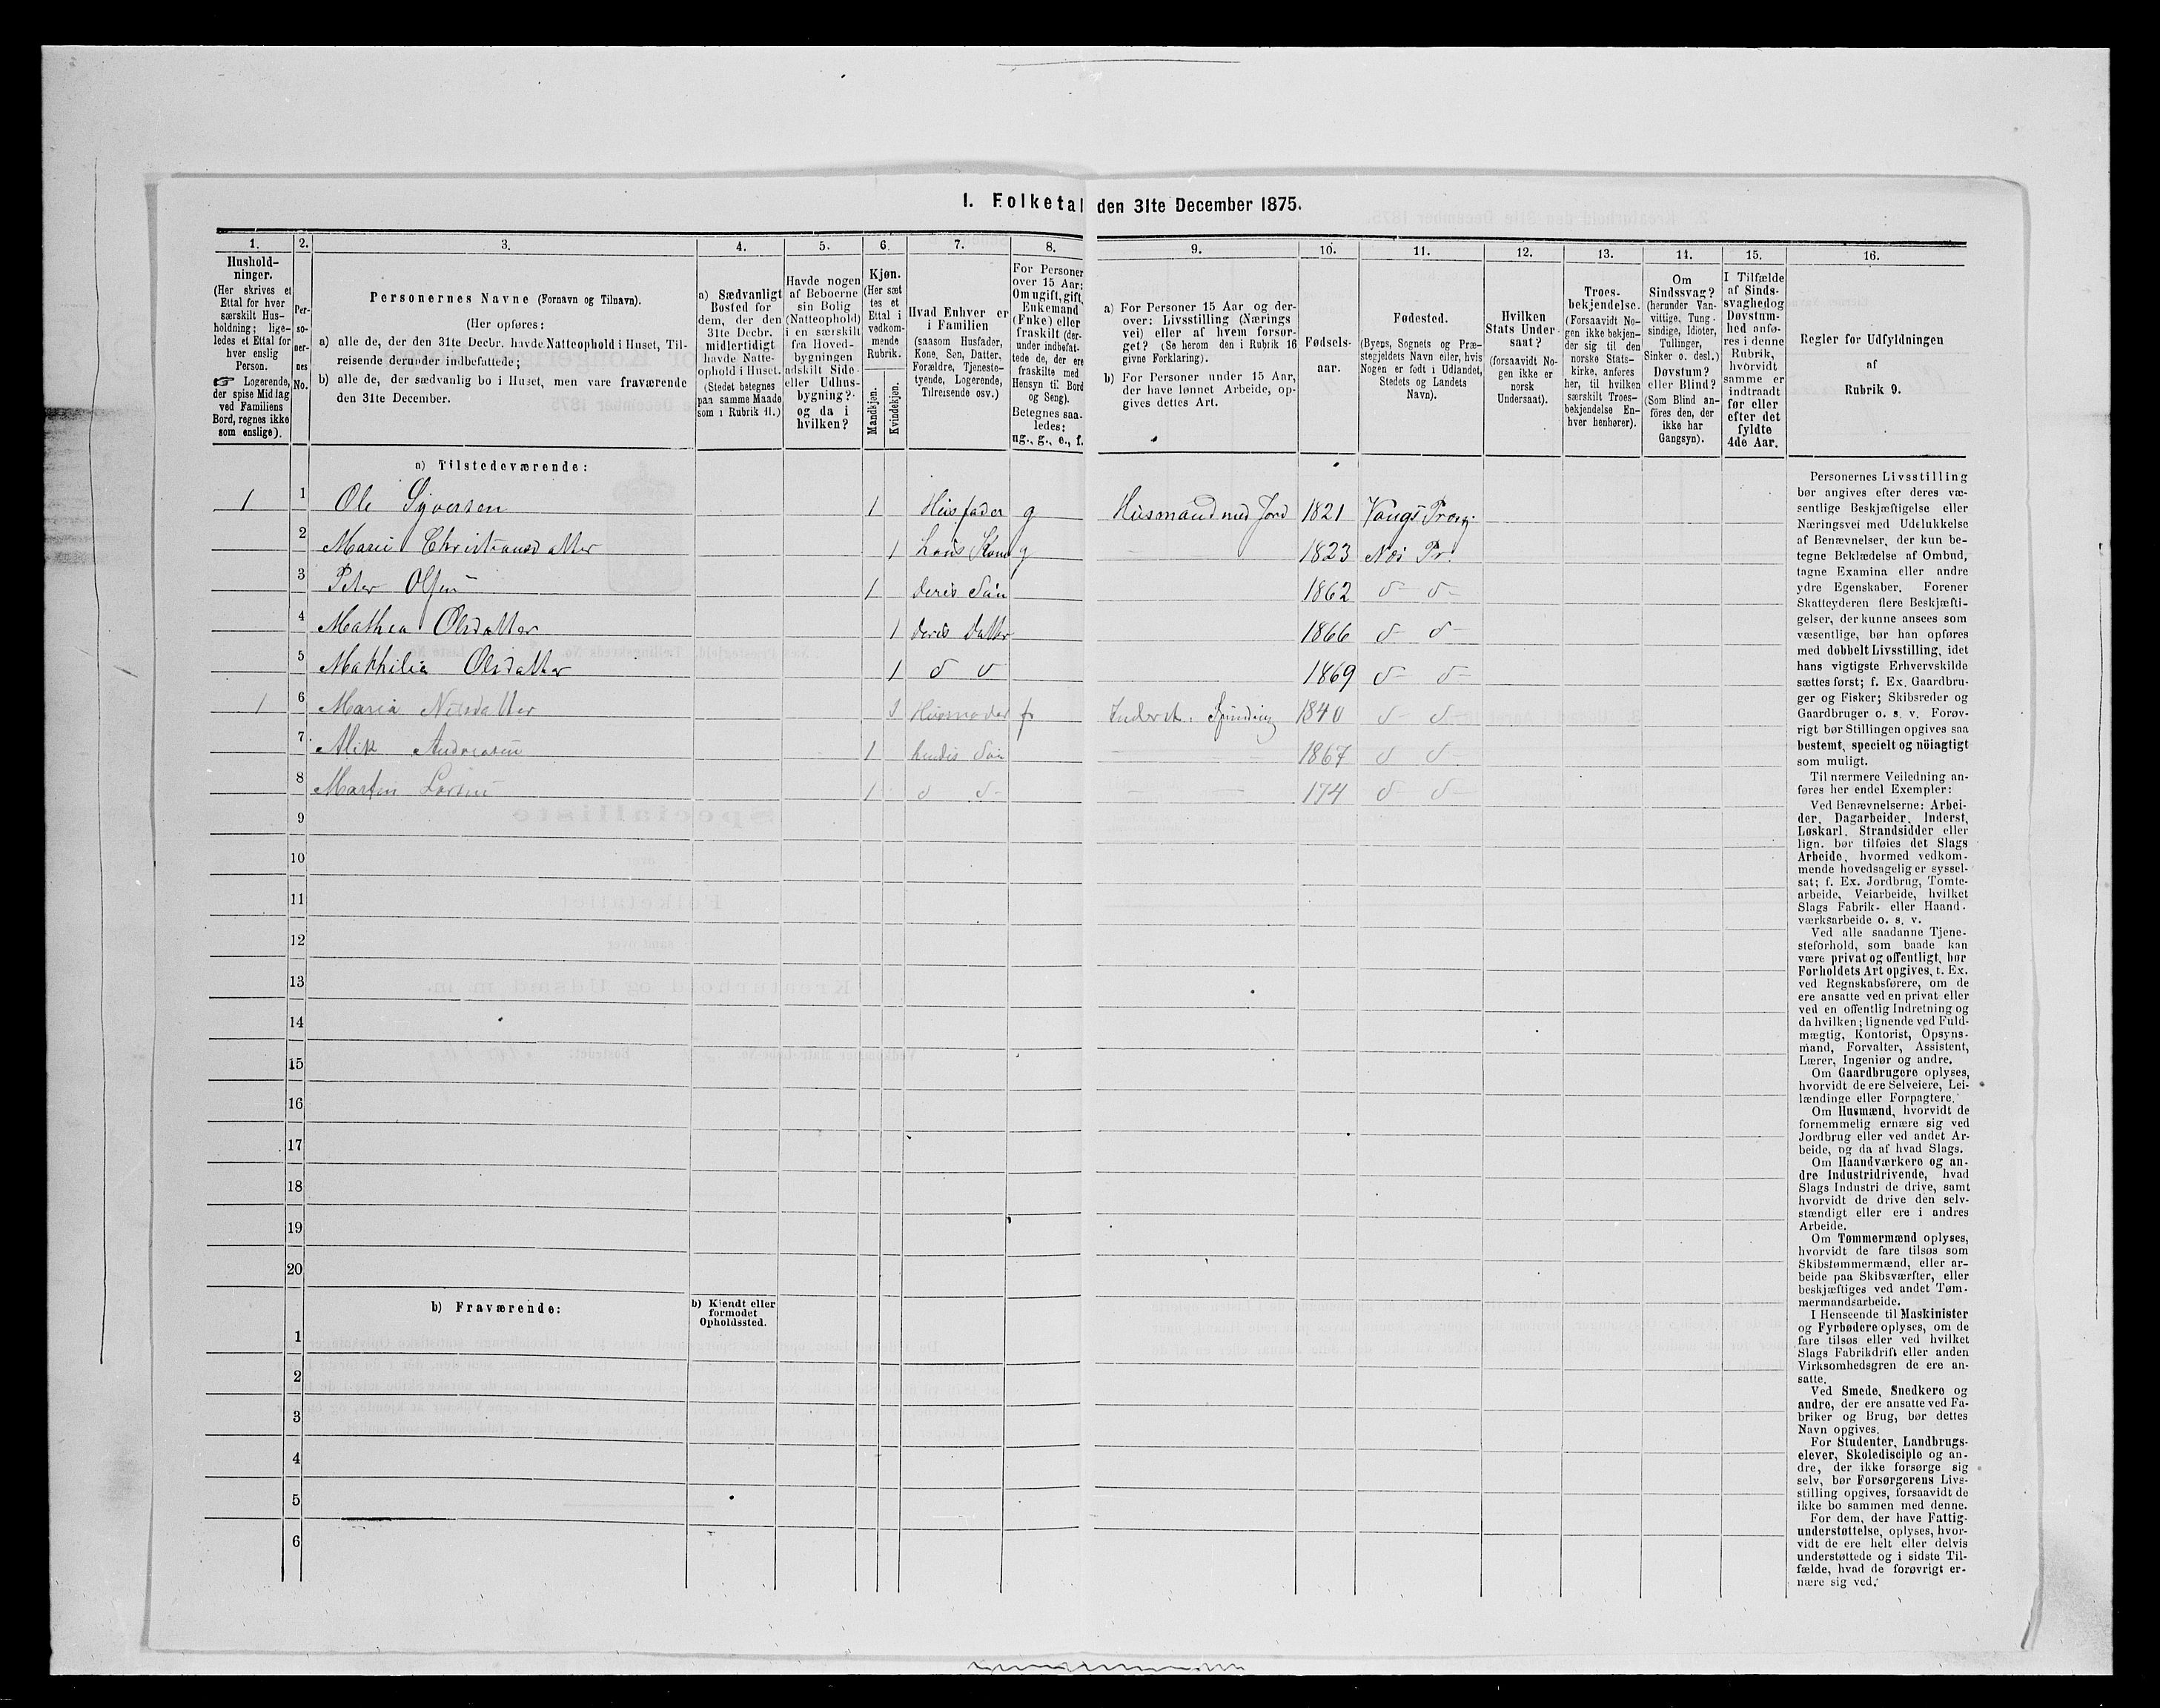 1. Folketal den 31te December 1875.
1.
2.
3.
4.
5.
6.
7.
8.
9.
10.
11.
12.
13.
14.
15.
16.
Hushold-
ninger.
(Her skrives et
Ettal for hver
særskilt Hus-
holdning; lige-
ledes et Ettal for
hver enslig
Person.
☞ Logerende,
der spise Middag
ved Familiens
Bord, regnes ikke
som enslige).
Per-
so-
ner-
nes
No.
Personernes Navne (Fornavn og Tilnavn).
(Her opføres:
a) alle de, der den 31te Decbr. havde Natteophold i Huset, Til-
reisende derunder indbefattede;
b) alle de, der sædvanlig bo i Huset, men vare fraværende
den 31te December.
a) Sædvanligt
Bosted for
dem, der den
31te Decbr.
midlertidigt
havde Natte-
ophold i Huset.
(Stedet betegnes
paa samme Maade
som i Rubrik 11.)
Havde nogen
af Beboerne
sin Bolig
(Natteophold)
i en særskilt
fra Hoved-
bygningen
adskilt Side-
eller Udhus-
bygning?
og da i
hvilken?
Kjøn.
(Her sæt
tes et
Ettal i
vedkom-
mende
Rubrik.
Mandkjøn.
Kvindekjøn.
Hvad Enhver er
i Familien
(saasom Husfader,
Kone, Søn, Datter,
Forældre, Tjeneste-
tyende, Logerende,
Tilreisende osv.)
For Personer
over 15 Aar:
Om ugift, gift,
Enkemand
(Enke) eller
fraskilt (der-
under indbefat-
tede de, der ere
fraskilte med
Hensyn til Bord
og Seng).
Betegnes saa-
ledes:
ug., g., e., f.
a) For Personer 15 Aar og der-
over: Livsstilling (Nærings
vei) eller af hvem forsør-
get? (Se herom den i Rubrik 16
givne Forklaring).
b) For Personer under 15 Aar,
der have lønnet Arbeide, op-
gives dettes Art.
Fødsels-
aar.
Fødested.
(Byens, Sognets og Præ-
stegjeldets Navn eller, hvis
Nogen er født i Udlandet,
Stedets og Landets
Navn).
Hvilken
Stats Under-
saat?
(forsaavidt No-
gen ikke er
norsk
Undersaat).
Troes-
bekjendelse.
(Forsaavidt No-
gen ikke bekjen-
der sig til den
norske Stats-
kirke, anføres
her, til hvilken
særskilt Troes-
bekjendelse En-
hver henhører).
Om
Sindssvag?
(herunder Van-
vittige, Tung-
sindige, Idioter,
Tullinger,
Sinker o. desl.)
Døvstum?
eller Blind?
(Som Blind an-
føres den, der
ikke har
Gangsyn).
I Tilfælde
af Sinds-
svaghed og
Døvstum-
hed anfø-
res i denne
Rubrik,
hvorvidt
samme er
indtraadt
før eller
efter det
fyldte
4de Aar.
Regler for Udfyldningen
af
Rubrik 9.
a) Tilstedeværende:
1 1 Ole Syversen 1 Husfader g Husmand med Jord 1821 Vangs Præstg.
2 Marie Christiansdatter 1 hans Kone g 1823 Næs Pr.
3 Peter Olsen 1 deres Søn 1862 d- d-
4 Mathea Olsdatter 1 deres Datter 1866 d- d-
5 Mathilia Olsdatter 1 d d 1869 d- d-
1 6 Maria Nilsdatter 1 Husmoder f Inderst. Spinding 1840 d d-
7 Andreasen 1 hendes Søn 1867 d d-
8 Martin Larsen 1 d d- 174 d- d-
9
10
11
12
13
14
15
16
17
18
19
20
b) Fraværende:
b) Kjendt eller
formodet
Opholdssted.
1
2
3
4
5
6
Personernes Livsstilling
bør angives efter deres væ-
sentlige Beskjæftigelse eller
Næringsvei med Udelukkelse
af Benævnelser, der kun be-
tegne Beklædelse af Ombud,
tagne Examina eller andre
ydre Egenskaber. Forener
Skatteyderen flere Beskjæfti-
gelser, der kunne ansees som
væsentlige, bør han opføres
med dobbelt Livsstilling, idet
hans vigtigste Erhvervskilde
sættes først; f. Ex. Gaardbru-
ger og Fisker; Skibsreder og
Gaardbruger o. s. v. Forøv-
rigt bør Stillingen opgives saa
bestemt, specielt og nöiagtigt
som muligt.
Til nærmere Veiledning an-
føres her endel Exempler:
Ved Benævnelserne: Arbei-
der, Dagarbeider, Inderst,
Løskarl, Strandsidder eller
lign. bør tilføies det Slags
Arbeide, hvormed vedkom-
mende hovedsagelig er syssel-
sat; f. Ex. Jordbrug, Tomte-
arbeide, Veiarbeide, hvilket
Slags Fabrik- eller Haand-
værksarbeide o. s. v.
Ved alle saadanne Tjene-
steforhold, som baade kan
være privat og offentligt, bør
Forholdets Art opgives, t. Ex.
ved Regnskabsførere, om de
ere ansatte ved en privat eller
ved en offentlig Indretning og
da hvilken; lignende ved Fuld-
mægtig, Kontorist, Opsyns-
mand, Forvalter, Assistent,
Lærer, Ingeniør og andre.
Om Gaardbrugere oplyses,
hvorvidt de ere Selveiere, Lei-
lændinge eller Forpagtere.
Om Husmænd, hvorvidt de
fornemmelig ernære sig ved
Jordbrug eller ved andet Ar-
beide, og da af hvad Slags.
Om Haandværkere og an-
dre Industridrivende, hvad
Slags Industri de drive, samt
hvorvidt de drive den selv-
stændigt eller ere i andres
Arbeide.
Om Tømmermænd oplyses,
hvorvidt de fare tilsøs som
Skibstømmermænd, eller ar-
beide paa Skibsværfter, eller
beskjæftiges ved andet Tøm-
mermandsarbeide.
I Henseende til Maskinister
og Fyrbødere oplyses, om de
fare tilsøs eller ved hvilket
Slags Fabrikdrift eller anden
Virksomhedsgren de ere an-
satte.
Ved Smede, Snedkere og
andre, der ere ansatte ved Fa-
briker og Brug, bør dettes
Navn opgives.
For Studenter, Landbrugs-
elever, Skoledisciple og an-
dre, der ikke forsørge sig
selv, bør Forsørgerens Livs-
stilling opgives, forsaavidt de
ikke bo sammen med denne.
For dem, der have Fattig-
understøttelse, oplyses, hvor-
vidt de ere helt eller delvis
understøttede og i sidste Til-
fælde, hvad de forøvrigt er-
nære sig ved.